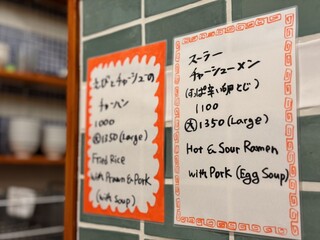 えびとチャーシューの
チャーハン
1000
大1350(Large)
Fried Rice
with Prawn & Pork
(with Soup)
スーラー
チャーシューメン
1100
大1350(Large)
Hot & Sour Ramen
with Pork (Egg Soup)